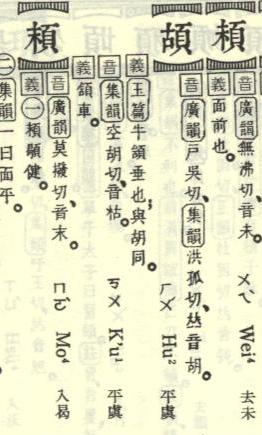 頪
音 廣韻無沸切音未。 ㄨㄟˋ Wei⁴ 去未
義 面前也。
頶
音 廣韻戶吳切、集韻洪孤切、𠀤音胡。 ㄏㄨˊ Hu² 平虞
義 玉篇牛頷垂也;與胡同。
音 集韻空胡切、音枯。 ㄎㄨ K'u¹ 平虞
義 頷車。
頪
音 廣韻莫撥切、音末。 ㄇㄛˋ Mo⁴ 入曷
義 ㊀頪顊健。
㊁集韻一曰面平。